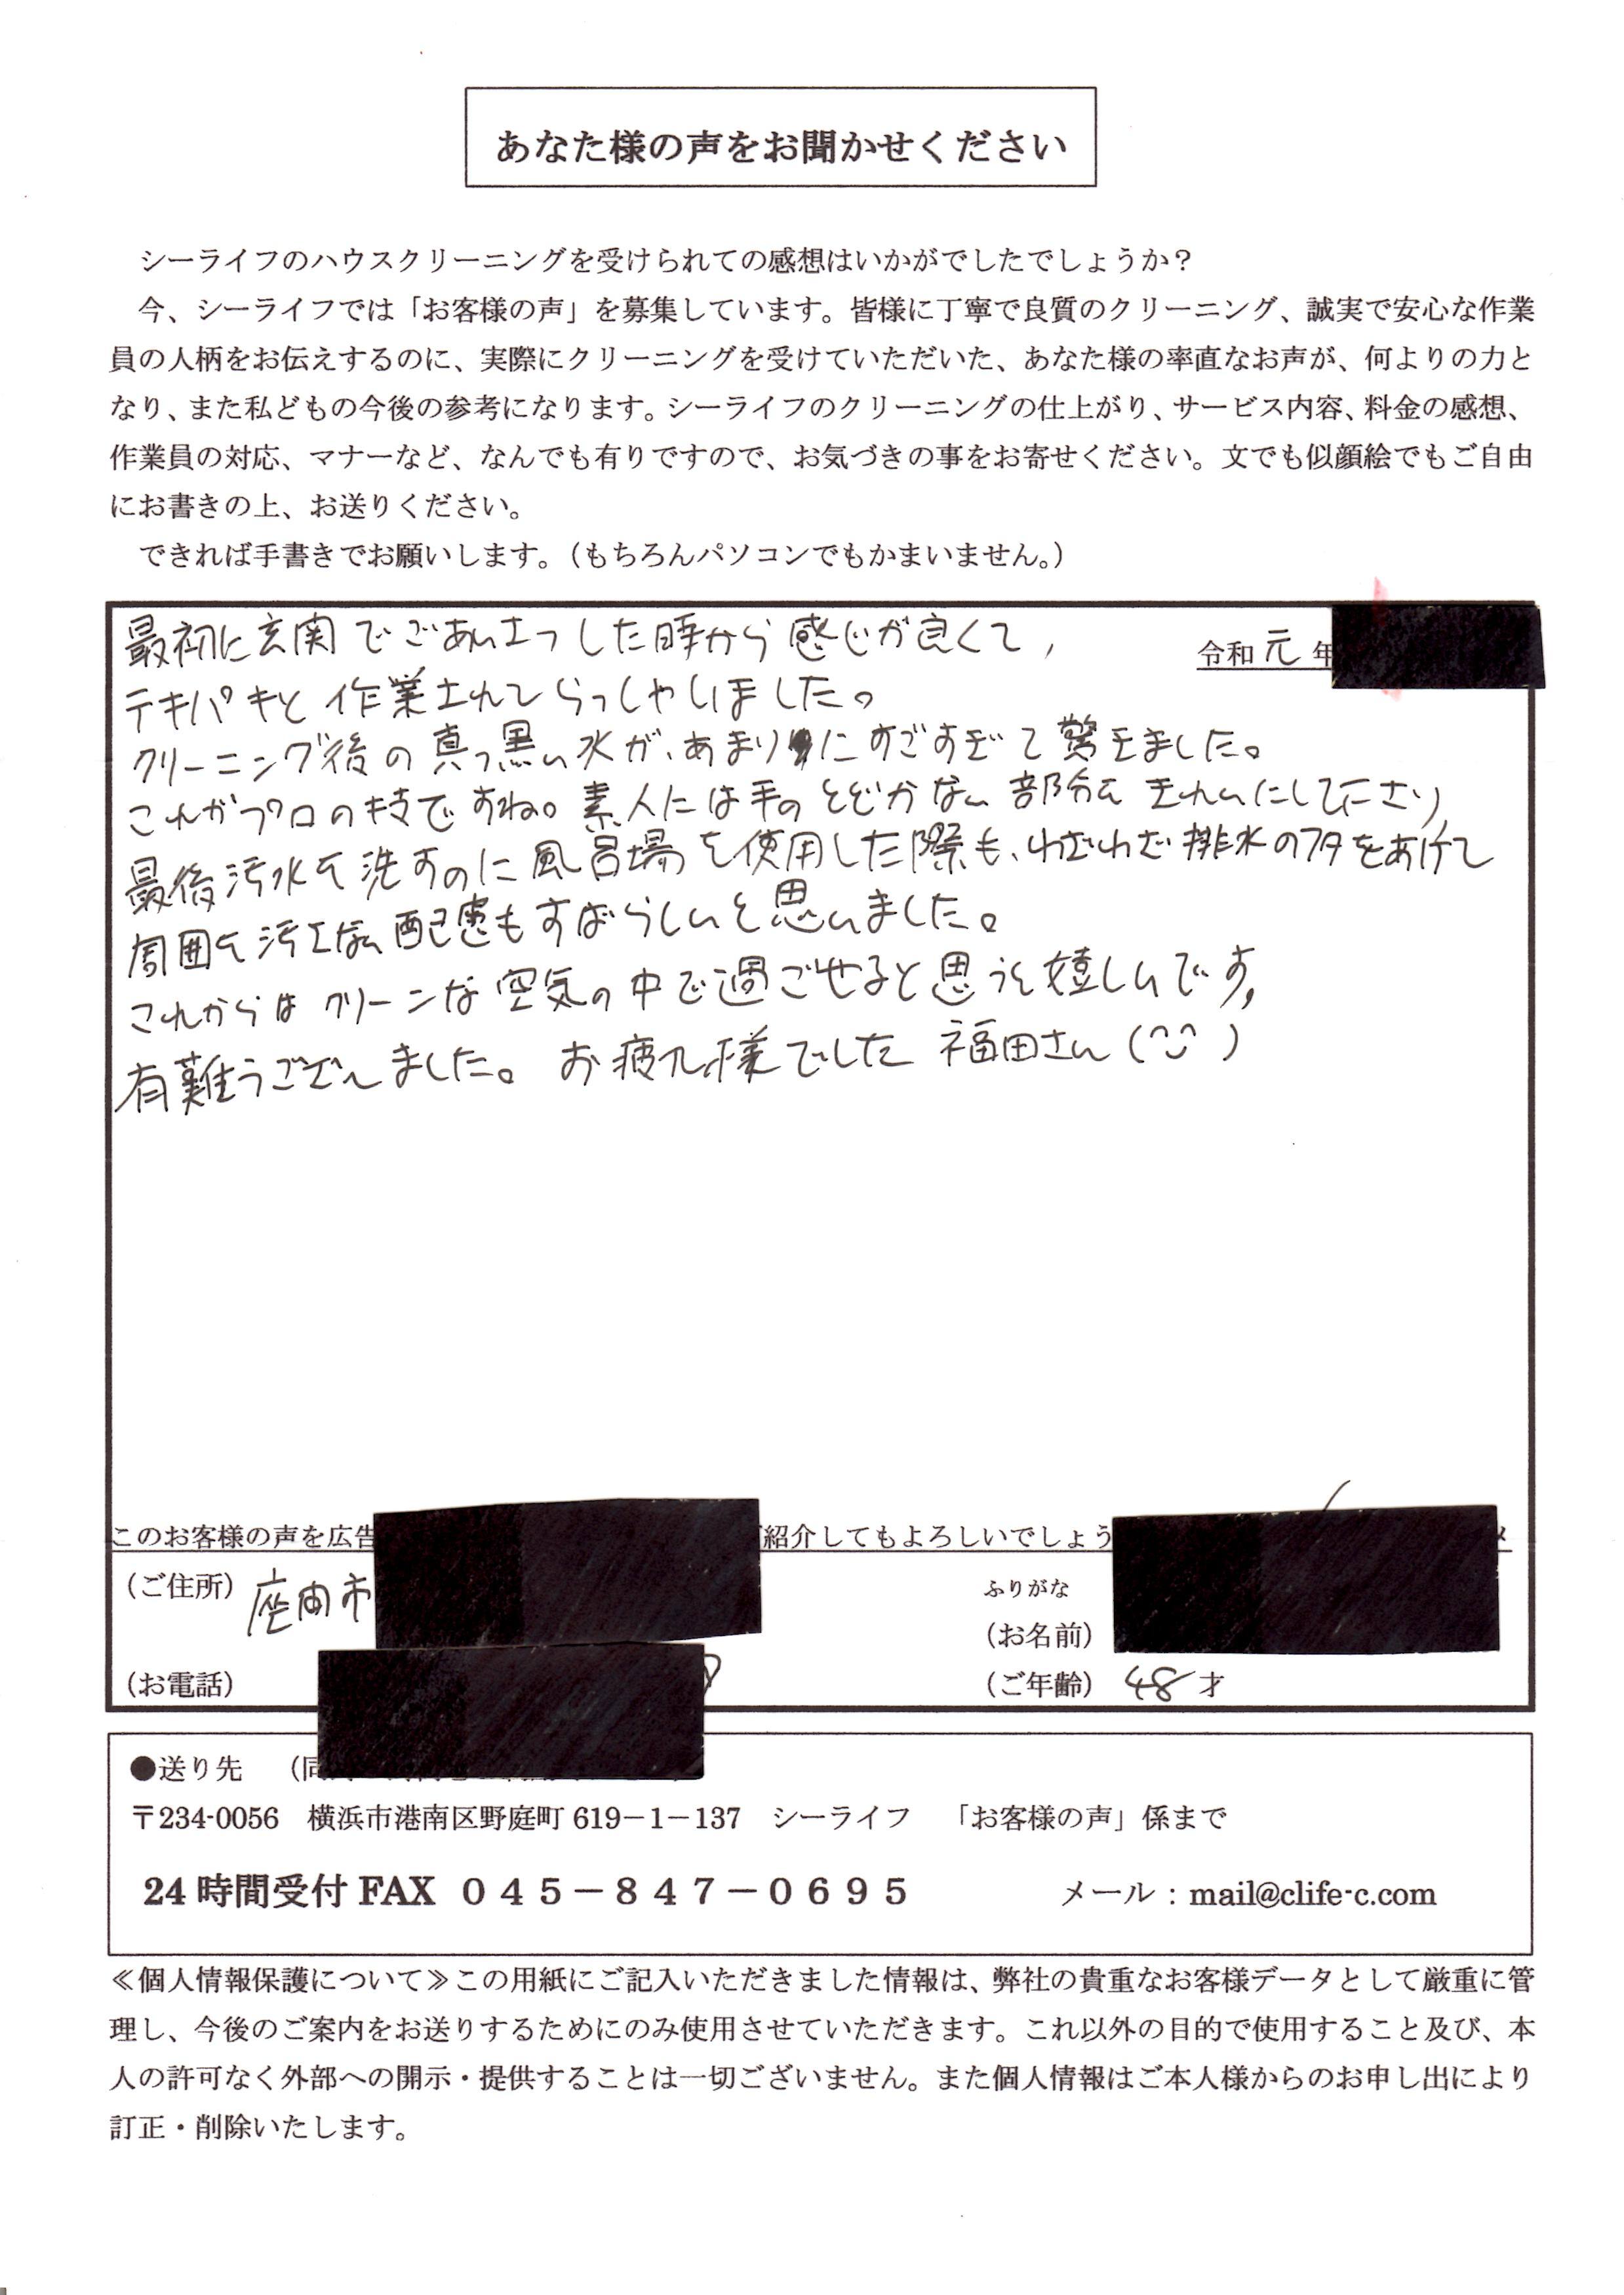 あなた様の声をお聞かせください
シーライフのハウスクリーニングを受けられての感想はいかがでしたでしょうか？
今、シーライフでは「お客様の声」を募集しています。皆様に丁寧で良質のクリーニング、誠実で安心な作業
員の人柄をお伝えするのに、実際にクリーニングを受けていただいた、あなた様の率直なお声が、何よりの力と
なり、また私どもの今後の参考になります。シーライフのクリーニングの仕上がり、サービス内容、料金の感想、
作業員の対応、マナーなど、なんでも有りですので、お気づきの事をお寄せください。文でも似顔絵でもご自由
にお書きの上、お送りください。
できれば手書きでお願いします。（もちろんパソコンでもかまいません。）
令和元年
最初に玄関でごあいさつした時から感じが良くて、
テキパキと作業されてらっしゃいました。
クリーニング後の真っ黒い水が、あまりにすごすぎて驚きました。
これがプロの技ですね。素人には手のとどかない部分をきれいにして下さり、
最後汚水を流すのに風呂場を使用した際も、わざわざ排水のフタをあけて
周囲を汚さない配慮もすばらしいと思いました。
これからはクリーンな空気の中で過ごせると思うと嬉しいです。
有難うございました。お疲れ様でした 福田さん(^^)
このお客様の声を広告 紹介してもよろしいでしょう
（ご住所）座間市
ふりがな
（お名前）
（お電話）
（ご年齢）48才
●送り先 （同
〒234-0056 横浜市港南区野庭町619－1－137 シーライフ 「お客様の声」係まで
24時間受付FAX ０４５－８４７－０６９５ メール：mail@clife-c.com
≪個人情報保護について≫この用紙にご記入いただきました情報は、弊社の貴重なお客様データとして厳重に管
理し、今後のご案内をお送りするためにのみ使用させていただきます。これ以外の目的で使用すること及び、本
人の許可なく外部への開示・提供することは一切ございません。また個人情報はご本人様からのお申し出により
訂正・削除いたします。